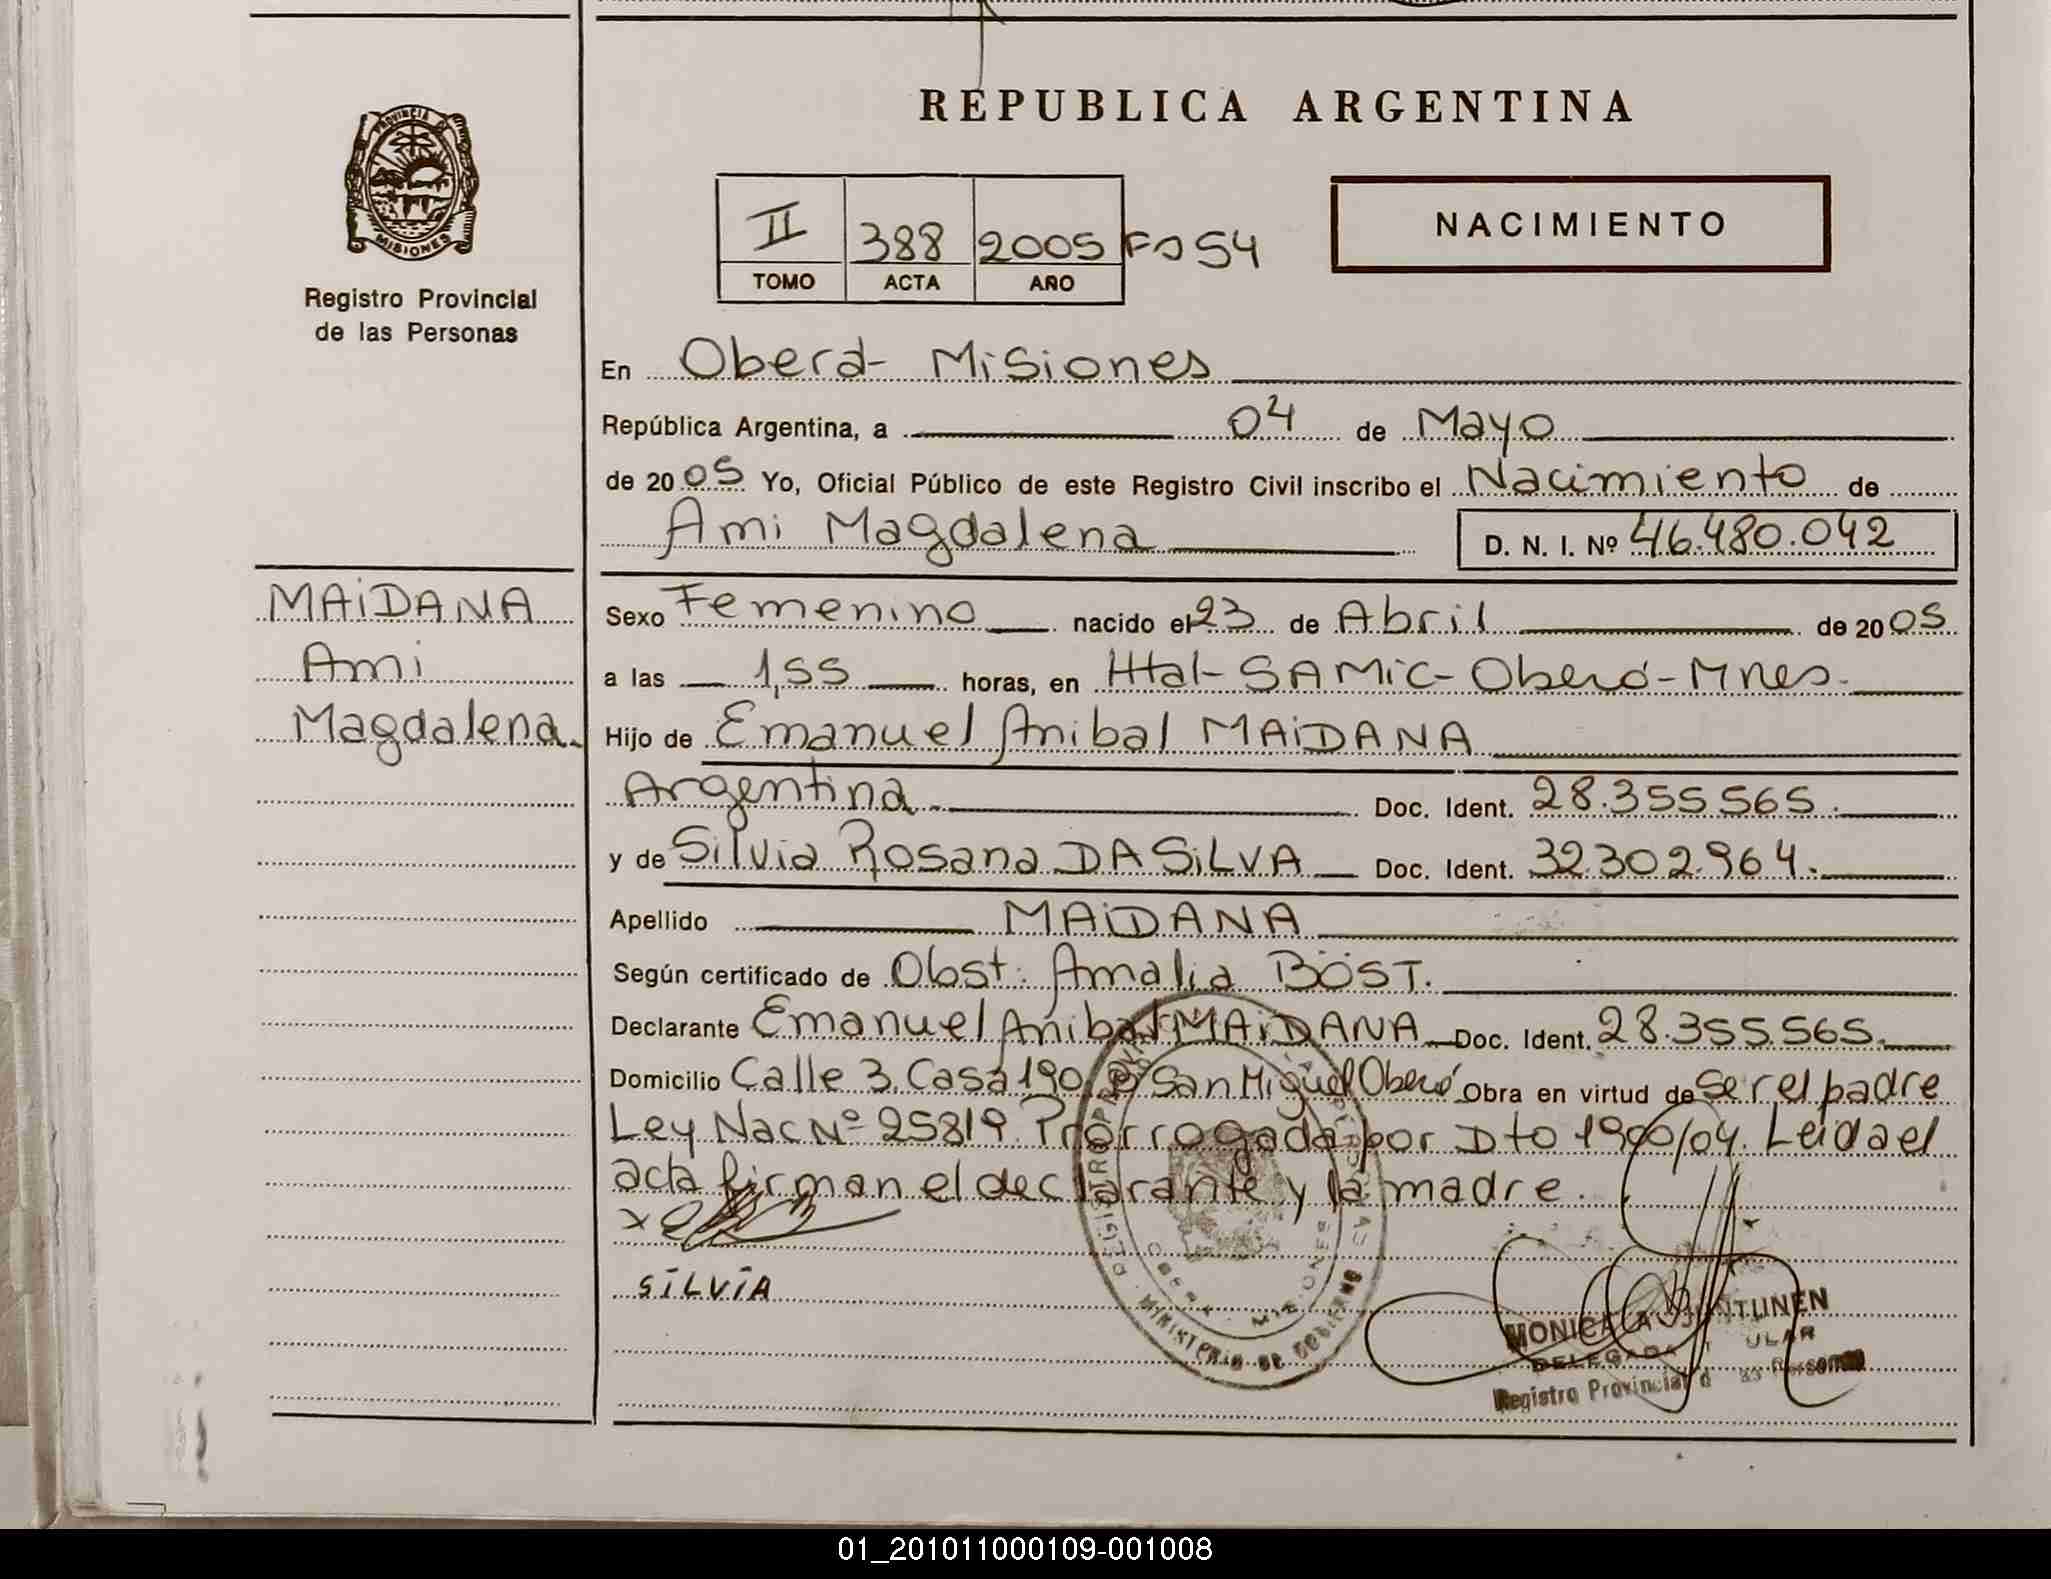 REPUBLICA ARGENTINA
PROVINCIA DE
MISIONES
Registro Provincial
de las Personas
II 388 2005 Fo 54
TOMO ACTA AÑO
NACIMIENTO
En Oberá- Misiones
República Argentina, a 04 de Mayo
de 2005 Yo, Oficial Público de este Registro Civil inscribo el Nacimiento de
Ami Magdalena D. N. I. Nº 46.480.042
MAiDANA
Ami
Magdalena.
Sexo Femenino nacido el 23 de Abril de 2005
a las 1,55 horas, en Htal- SAMiC- Oberá- Mnes.
Hijo de Emanuel Anibal MAiDANA
Argentina. Doc. Ident. 28.355.565.
y de Silvia Rosana DA SiLVA Doc. Ident. 32.302.964.
Apellido MAiDANA
Según certificado de Obst. Amalia BÖST.
Declarante Emanuel Anibal MAiDANA Doc. Ident. 28.355.565.
Domicilio Calle 3. Casa 190 San Miguel Oberá Obra en virtud de ser el padre
Ley Nac Nº 25819. Prorrogada por Dto 1900/04. Leida el
acta firman el declarante y la madre.
SiLViA
MINISTERIO DE GOBIERNO
MISIONES
MONICA
DELEGADA
Registro Provincial
01_201011000109-001008